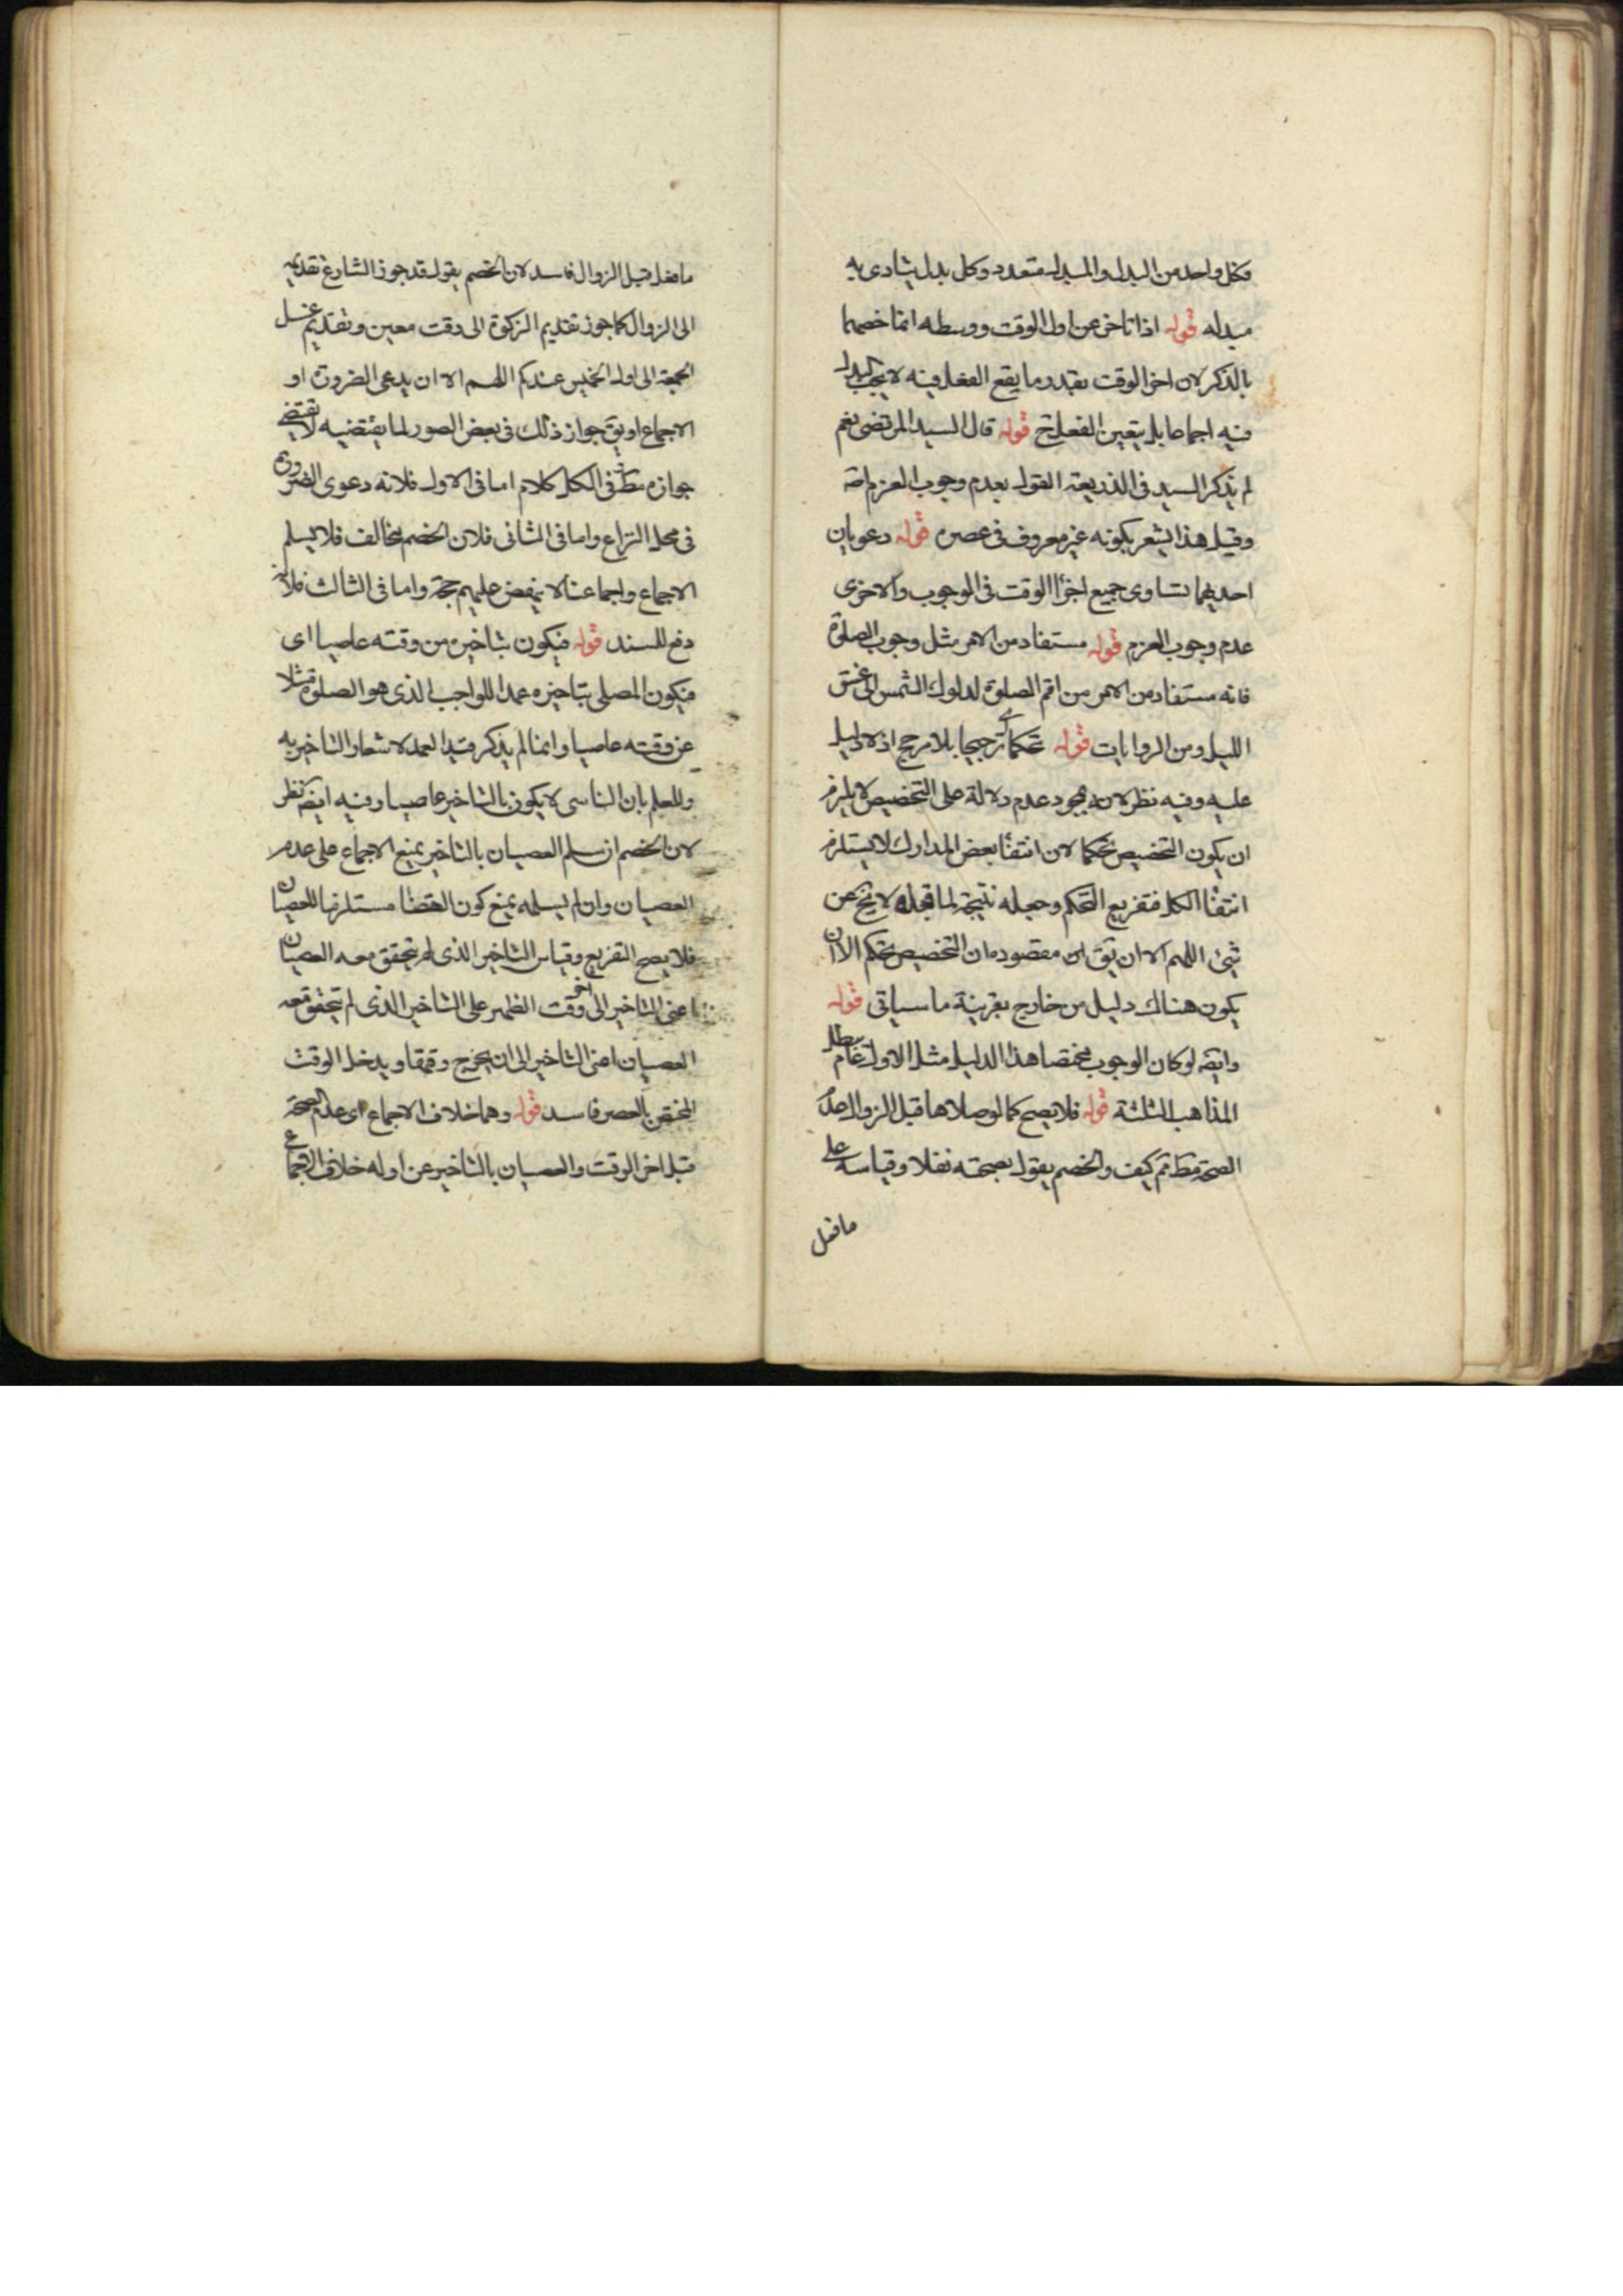 فكل واحد من البدل والمبدل متعدد وكل بدل يتادى به
مبدله قوله اذا تاخر عن اول الوقت ووسطه انما خصهما
بالذكر لان اخر الوقت بقدر ما يقع الفعل فيه لا يجب البدل
فيه اجماعا بل يتعين الفعل ح قوله قال السيد المرتضى نعم
لم يذكر السيد فى الذريعة القول بعدم وجوب العزم اصه
وقيل هذا يشعر بكونه غير معروف فى عصره قوله دعويان
احديهما تساوى جميع اجزأ الوقت فى الوجوب والاخرى
عدم وجوب العزم قوله مستفاد من الامر مثل وجوب الصلوة
فانه مستفاد من الامر من اقم الصلوة لدلوك الشمس الى غسق
الليل ومن الروايات قوله تحكما اى ترجيحا بلا مرجح اذ لا دليل
عليه وفيه نظر لان مجرد عدم دلالة على التخصيص لا يلزم
ان يكون التخصيص تحكما لان انتفأ بعض المدارك لا يستلزم
انتفأ الكل فتفريع التحكم وجعله نتيجة لما قبله لا يخ عن
شئ اللهم الا ان يق ان مقصوده ان التخصيص تحكم الا ان
يكون هناك دليل من خارج بقرينة ما سياتى قوله
وايضه لو كان الوجوب مختصا هذا الدليل مثل الاول يبطل تمام
المذاهب الثلثة قوله فلا يصح كما لو صلاها قبل الزوال عدم
الصحة مط ثم كيف والخصم يقول بصحته نفلا وقياسه على
ما فعل
ما فعل قبل الزوال فاسد لان الخصم يقول قد جوز الشارع تقديمه
الى الزوال كما جوز تقديم الزكوة الى وقت معين وتقديم غسل
الجمعة الى اول الخميس عندكم اللهم الا ان يدعى الضرورة او
الاجماع او يق جواز ذلك فى بعض الصور لما يقتضيه لا يقتضى
جوازه مط وفى الكل كلام اما فى الاول فلانه دعوى الضرورة
فى محل النزاع واما فى الثانى فلان الخصم مخالف فلا يسلم
الاجماع واجماعنا لا ينهض عليهم حجة واما فى الثالث فلانه
دفع للسند قوله فيكون بتاخيره من وقته عاصيا اى
فيكون المصلى بتاخيره عمدا للواجب الذى هو الصلوة مثلا
عن وقته عاصيا وانما لم يذكر قيد العمد لاشعار التاخير به
وللعلم بان الناسى لا يكون بالتاخير عاصيا وفيه ايضه نظر
لان الخصم ان سلم العصيان بالتاخير يمنع الاجماع على عدم
العصيان وان لم يسلمه يمنع كون القضأ مستلزما للعصيان
فلا يصح التفريع وقياس التاخير الذى لم يتحقق معه العصيان
اعنى التاخير الى اخر وقت الظهر على التاخير الذى لم يتحقق معه
العصيان اعنى التاخير الى ان يخرج وقتها ويدخل الوقت
المختص بالعصر فاسد قوله وهما خلاف الاجماع اى عدم الصحة
قبل اخر الوقت والعصيان بالتاخير عن اوله خلاف الاجماع